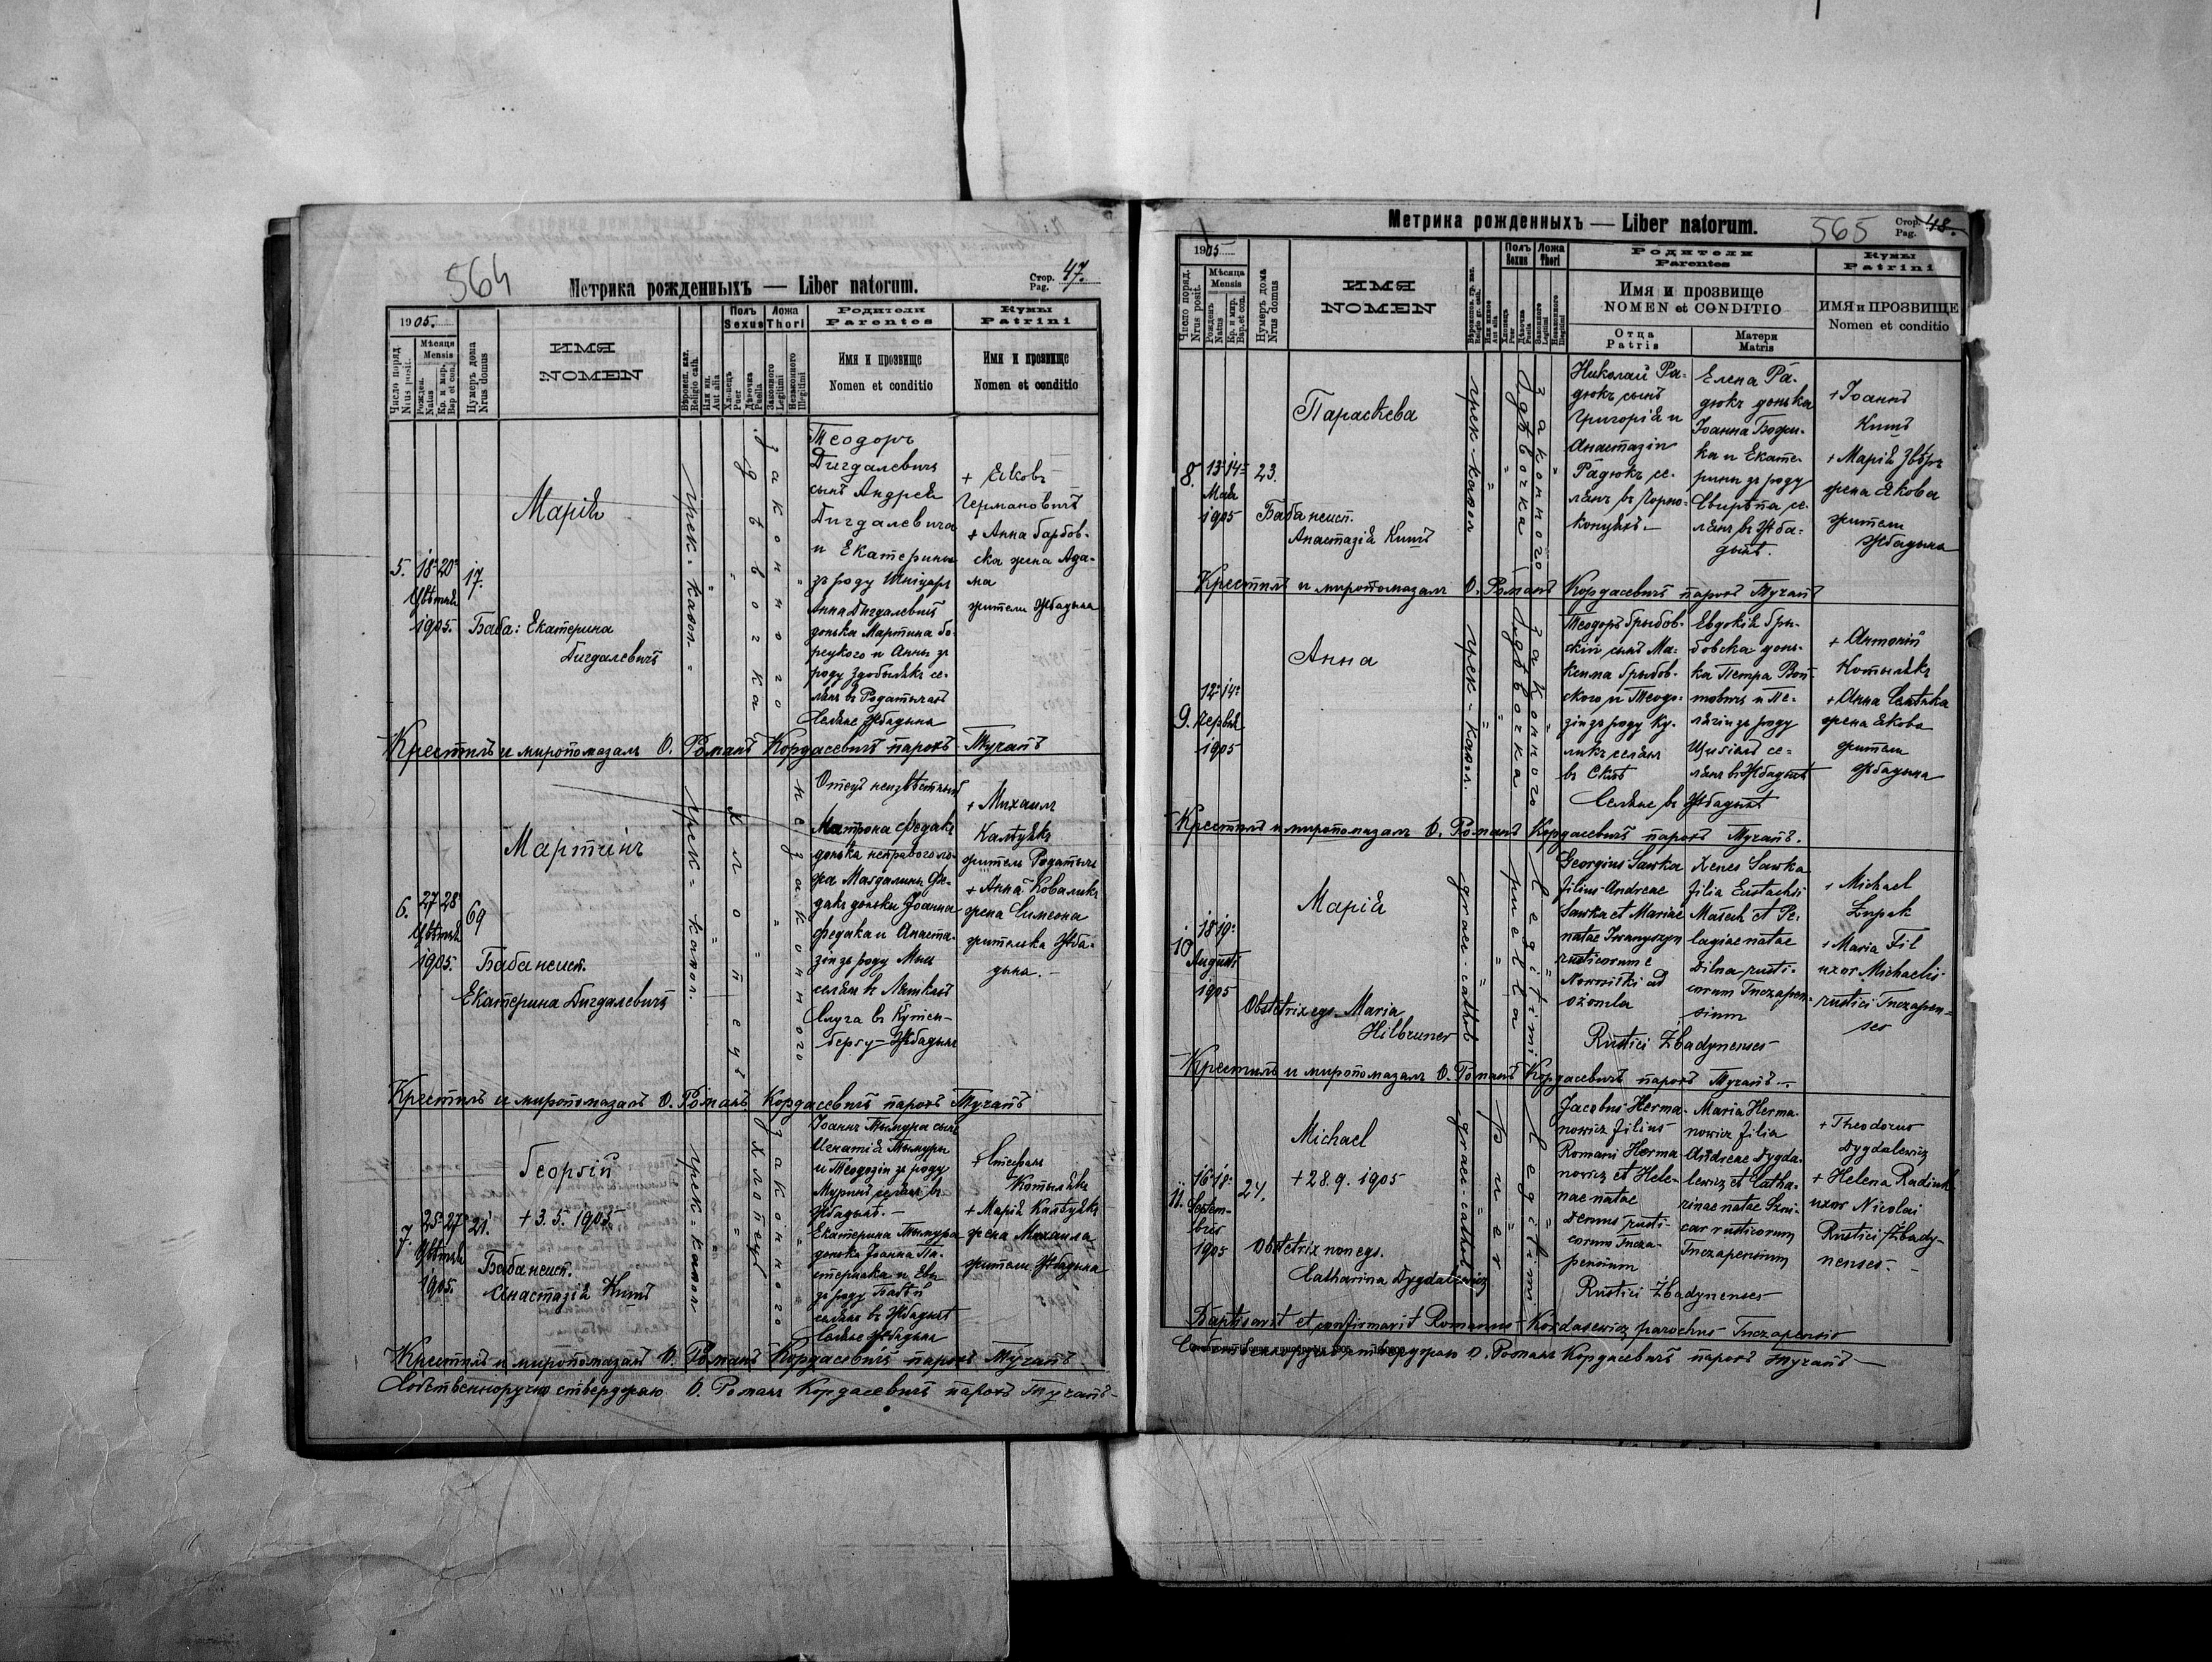 564
Метрика рожденныхъ — Liber natorum.
Стор. 47.
Pag.
1905.
Число поряд.
Nrus posit.
Мѣсяца
Mensis
Рожден.
Natus
Кр. и мир.
Bap et con.
Нумеръ дома
Nrus domus
ИМЯ
NOMEN
Вѣроисп. кат.
Religio cath.
Или ин.
Aut alia
Полъ
Sexus
Хлопецъ
Puer
Дѣвочка
Puella
Ложа
Thori
Законного
Legitimi
Незаконного
Illegitimi
Родители
Parentes
Имя и прозвище
Nomen et conditio
Кумы
Patrini
Имя и прозвище
Nomen et conditio
5.
18 20
Цвѣтня
1905.
17.
Марія
Баба: Екатерина
Дигдалевичъ
грек. катол.
дѣвочка
законного
Теодоръ
Дигдалевичъ
сынъ Андрея
Дигдалевича
и Екатерины
зъ роду Шніцаръ
Анна Дигдалевичъ
донька Мартина Бо-
рецкого и Анны зъ
роду Здобылякъ се-
лянъ въ Родатычахъ
Селяне Жбадына
+ Яковъ
Германовичъ
+ Анна Барбов-
ска жена Ада-
ма
жители Жбадына
Крестилъ и миропомазалъ О. Романъ Кордасевичъ парохъ Тучапъ
6.
27 28
Цвѣтня
1905.
69
Мартинъ
Баба неисп.
Екатерина Дигдалевичъ
грек. катол.
хлопецъ
незаконного
Отецъ неизвѣстный
Матрона Федакъ
донька неправого ло-
жа Магдалины Фе-
дакъ доньки Іоанна
Федака и Анаста-
зіи зъ роду Мыць
селянъ въ
Слуга въ
бергу - Жбадынъ
+ Михаилъ
Калѣуякъ
житель Родатычъ
+ Анна Коваликъ
жена Симеона
жителька Жба-
дына. -
Крестилъ и миропомазалъ О. Романъ Кордасевичъ парохъ Тучапъ
7.
25 27
Цвѣтня
1905.
21.
Георгій
+ 3. 5. 1905.
Баба неисп.
Анастазія Кишъ
грек. катол
хлопецъ
законного
Іоаннъ Тымура сынъ
Игнатія Тымуры
и Теодозіи зъ роду
Муринъ селянъ въ
Жбадынѣ. -
Екатерина Тымура
донька Іоанна Па-
стернака и Евы
зъ роду Бабѣй
селянъ въ Жбадынѣ
Селяне Жбадына
+ Стефанъ
Котылякъ
+ Марія Калѣуякъ
жена Михаила
жители Жбадына
Крестилъ и миропомазалъ О. Романъ Кордасевичъ парохъ Тучапъ
Собственноручно стверджаю О. Романъ Кордасевичъ парохъ Тучапъ -
Метрика рожденныхъ — Liber natorum.
565
Стор. 48.
Pag.
1905
Число поряд.
Nrus posit.
Мѣсяца
Mensis
Рожденъ
Natus
Кр. и мир.
Bap. et con.
Нумеръ дома
Nrus domus
ИМЯ
NOMEN
Вѣроиспов. гр. кат.
Religio gr. cath.
Или иншое
Aut alia
Полъ
Sexus
Хлопець
Puer
Дѣвочка
Puella
Ложа
Thori
Законного
Legitimi
Незаконного
Illegitimi
Родители
Parentes
Имя и прозвище
NOMEN et CONDITIO
Отца
Patris
Матери
Matris
Кумы
Patrini
ИМЯ и ПРОЗВИЩЕ
Nomen et conditio
8.
13 14
Мая
1905
23.
Параскева
Баба неисп.
Анастазія Кишъ
грек. катол
дѣвочка
законного
Николай Ра-
дюкъ сынъ
Григорія и
Анастазіи
Радюкъ се-
лянъ въ Чорно-
концяхъ. -
Елена Ра-
дюкъ донька
Іоанна Бофи-
ка и Екате-
рины зъ роду
Свирѣпа се-
лянъ въ Жба-
дынѣ.
+ Іоаннъ
Кишъ
+ Марія Звѣръ
жена Якова
жители
Жбадына
Крестилъ и миропомазалъ О. Романъ Кордасевичъ парохъ Тучапъ
9.
12 14
Червня
1905
Анна
грек. - катол.
дѣвочка
законного
Теодоръ Грыбов-
скій сынъ Ма-
ксима Грыбов-
ского и Теодо-
зіи зъ роду Ку-
ликъ селянъ
въ
Евдокія Гры-
бовска донь-
ка Петра Вой-
товичъ и Пе-
лягіи зъ роду
се-
лянъ въ Жбадынѣ
Селяне въ Жбадынѣ
+ Антоній
Котылякъ
+ Анна
жена Якова
жители
Жбадына
Крестилъ и миропомазалъ О. Романъ Кордасевичъ парохъ Тучапъ.
10
18 19
Augusti
1905
Марія
Obstetrix egs. Maria
Hilbruner
graec. - cathol
puella
legitimi
Georgius Sawka
filius Andreae
Sawka et Mariae
natae Iwanyszyn
rusticorum e
Nowosiłki ad
ożomla
Xenes Sawka
filia Eustachii
Masech et Pe-
lagiae natae
Dilna rusti-
corum Tuczapen-
sium
Rustici Żbadynenses
+ Michael
Żupek
+ Maria Fil
uxor Michaelis
rustici Tuczapen-
ses
Крестилъ и миропомазалъ О. Романъ Кордасевичъ парохъ Тучапъ. -
11.
16 18
Septem-
bris
1905
24.
Michael
+ 28. 9. 1905
Obstetrix non egs.
Catharina Dygdalewicz
graec. - cathol
puer
legitimi
Jacobus Herma-
nowicz filius
Romani Herma-
nowicz et Hele-
nae natae
Demus rusti-
corum Tucza-
pensium
Maria Herma-
nowicz filia
Andreae Dygda-
lewicz et Catha-
rinae natae Szni-
car rusticorum
Tuczapensium
Rustici Żbadynenses
+ Theodorus
Dygdalewicz
+ Helena Radiuk
uxor Nicolai
Rustici Żbady-
nenses. -
Baptisavit et confirmavit Romanus Kordasewicz parochus Tuczapensis
Собственноручно стверджаю О. Романъ Кордасевичъ парохъ Тучапъ -